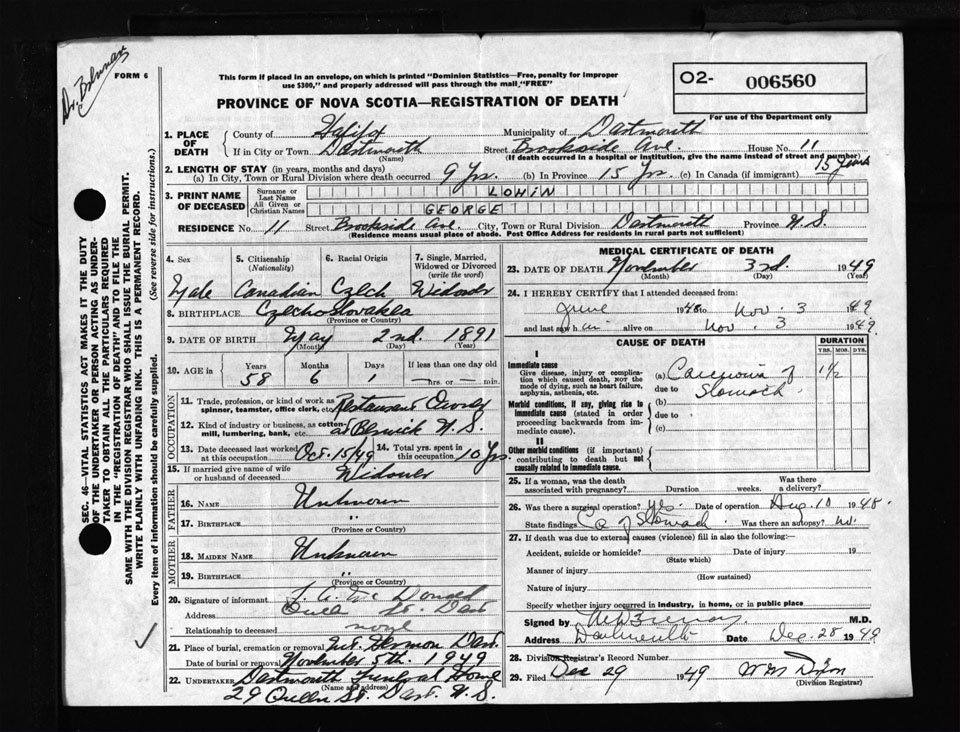 Dr. Brennan
FORM 6
This form if placed in an envelope, on which is printed "Dominion Statistics—Free, penalty for improper
use $300," and properly addressed will pass through the mail "FREE"
PROVINCE OF NOVA SCOTIA—REGISTRATION OF DEATH
O2- 006560
For use of the Department only
SEC. 46—VITAL STATISTICS ACT MAKES IT THE DUTY
OF THE UNDERTAKER OR PERSON ACTING AS UNDER-
TAKER TO OBTAIN ALL THE PARTICULARS REQUIRED
IN THE "REGISTRATION OF DEATH" AND TO FILE THE
SAME WITH THE DIVISION REGISTRAR WHO SHALL ISSUE THE BURIAL PERMIT.
WRITE PLAINLY WITH UNFADING INK. THIS IS A PERMANENT RECORD.
Every item of information should be carefully supplied. (See reverse side for instructions.)
1. PLACE OF DEATH County of Halifax Municipality of Dartmouth
If in City or Town Dartmouth (Name) Street Brookside Ave. House No. 11
(If death occurred in a hospital or institution, give the name instead of street and number)
2. LENGTH OF STAY (in years, months and days)
(a) In City, Town or Rural Division where death occurred 9 Yrs. (b) In Province 15 Yrs. (c) In Canada (if immigrant) 15 Years
3. PRINT NAME OF DECEASED Surname or Last Name LOHIN
All Given or Christian Names GEORGE
RESIDENCE No. 11 Street Brookside Ave. City, Town or Rural Division Dartmouth Province N.S.
(Residence means usual place of abode. Post Office Address for residents in rural parts not sufficient)
4. Sex 5. Citizenship (Nationality) 6. Racial Origin 7. Single, Married, Widowed or Divorced (write the word)
Male Canadian Czech Widower
8. BIRTHPLACE Czechoslovakia
(Province or Country)
9. DATE OF BIRTH May 2nd. 1891
(Month) (Day) (Year)
10. AGE in Years Months Days If less than one day old
58 6 1 —hrs. or — min.
OCCUPATION
11. Trade, profession, or kind of work as spinner, teamster, office clerk, etc. Restaurant Owner
12. Kind of industry or business, as cotton-mill, lumbering, bank, etc. at Berwick N.S.
13. Date deceased last worked at this occupation Oct. 15/49 14. Total yrs. spent in this occupation 10 Yrs.
15. If married give name of wife or husband of deceased Widower
FATHER
16. NAME Unknown
17. BIRTHPLACE "
(Province or Country)
MOTHER
18. MAIDEN NAME Unknown
19. BIRTHPLACE "
(Province or Country)
20. Signature of informant Mc Donald
Address St. Dart
Relationship to deceased none
21. Place of burial, cremation or removal Mt. Hermon Dart.
Date of burial or removal November 5th. 1949
22. UNDERTAKER Dartmouth Funeral Home
(Name and address)
29 Queen St. Dart. N.S.
MEDICAL CERTIFICATE OF DEATH
23. DATE OF DEATH November 3rd. 1949
(Month) (Day) (Year)
24. I HEREBY CERTIFY that I attended deceased from:
June 1948 to Nov. 3 1949
and last saw him alive on Nov. 3 1949.
CAUSE OF DEATH DURATION
YRS. MOS. DYS.
I
Immediate cause
Give disease, injury or complication which caused death, nor the mode of dying, such as heart failure, asphyxia, asthenia, etc.
(a) Carcinoma of Stomach 1½
due to
Morbid conditions, if any, giving rise to immediate cause (stated in order proceeding backwards from immediate cause).
(b)
due to
(c)
II
Other morbid conditions (if important) contributing to death but not causally related to immediate cause.
25. If a woman, was the death associated with pregnancy? Duration weeks. Was there a delivery?
26. Was there a surgical operation? Yes. Date of operation Aug. 10 1948.
State findings Ca of Stomach Was there an autopsy? no.
27. If death was due to external causes (violence) fill in also the following:
Accident, suicide or homicide? Date of injury 19
(State which)
Manner of injury
(How sustained)
Nature of injury
Specify whether injury occurred in industry, in home, or in public place
Signed by Brennan M.D.
Address Dartmouth Date Dec. 28 1949
28. Division Registrar's Record Number
29. Filed Dec 29 1949 W M Dixon
(Division Registrar)